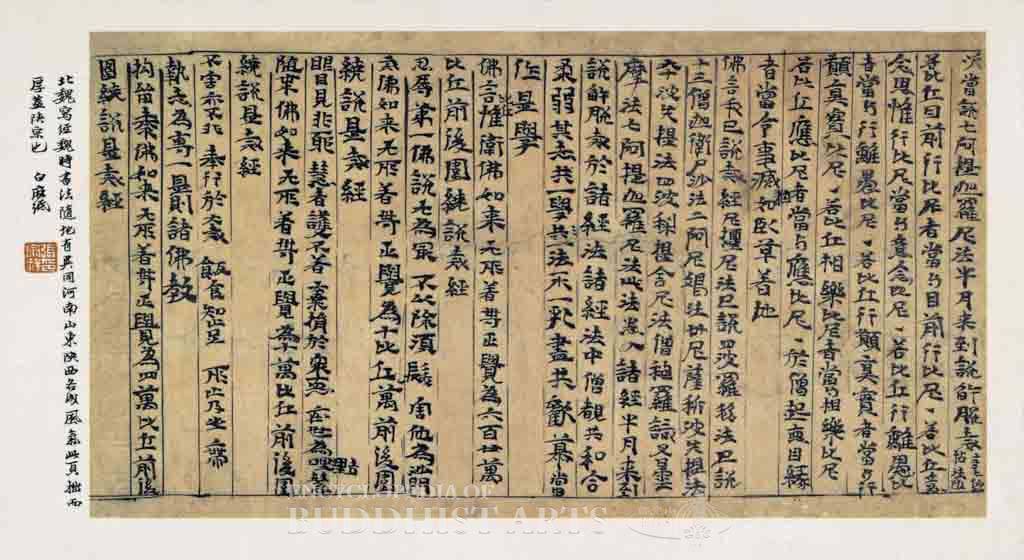 法當說七阿提迦羅尼法半月來到說
若比丘目前行比尼者當與目前行比尼若比丘
念思惟行比尼當與憶念比尼若比丘行離愚比
者當與行離愚比尼若比丘行顛真實者當與行
顛真實比尼若比丘相樂比尼者當與相樂比尼
若比丘應比尼者當與應比尼於僧起 因緣
者當令事滅如草著地
佛言我已說 經尼壇尼法已說四波羅移法已說
十三僧伽衛尸沙法二阿尼竭法卅尼薩耆波失提法
波失提法四波梨提舍尼法僧 羅 又
摩法七阿提迦羅尼法此法 入諸經半月來到
說解脫 於諸經法諸經法中僧都共和合
柔弱其志共一學共一法不一 盡共歡 當
作是學
佛言惟衛佛如來无所著等正覺為六百 萬
比丘前後圍繞說 經
忍辱第一佛說 為 不以除鬚 害他為沙門
式佛如來无所著等正覺為千比丘萬前後圍
繞說是 經
眼目見非耶慧者護不著 於眾惡 世為
隨 佛如來无所著等正覺為 萬比丘前後圍
繞說是 經
不害亦不非奉行於 飯食知止足 所止乃坐席
執志為專一是則諸佛教
拘 佛如來无所著等正覺為四萬比丘前後
圍繞說是 經
北魏寫經魏時書法隨地有異同河南山東陝西各成風氣此頁拙而
厚蓋陝宗也 白麻紙
ENCYCLOPEDIA OF
BUDDHIST ARTS